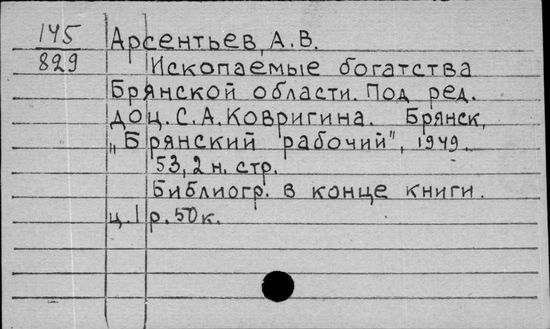 145 Арсентьев, А.В.
829 Ископаемые богатства
Брянской области. Под ред.
доц. С.А. Ковригина. Брянск,
„Брянский рабочий", 1949.
53, 2 н. стр.
Библиогр. в конце книги.
ц. 1 р. 50 к.